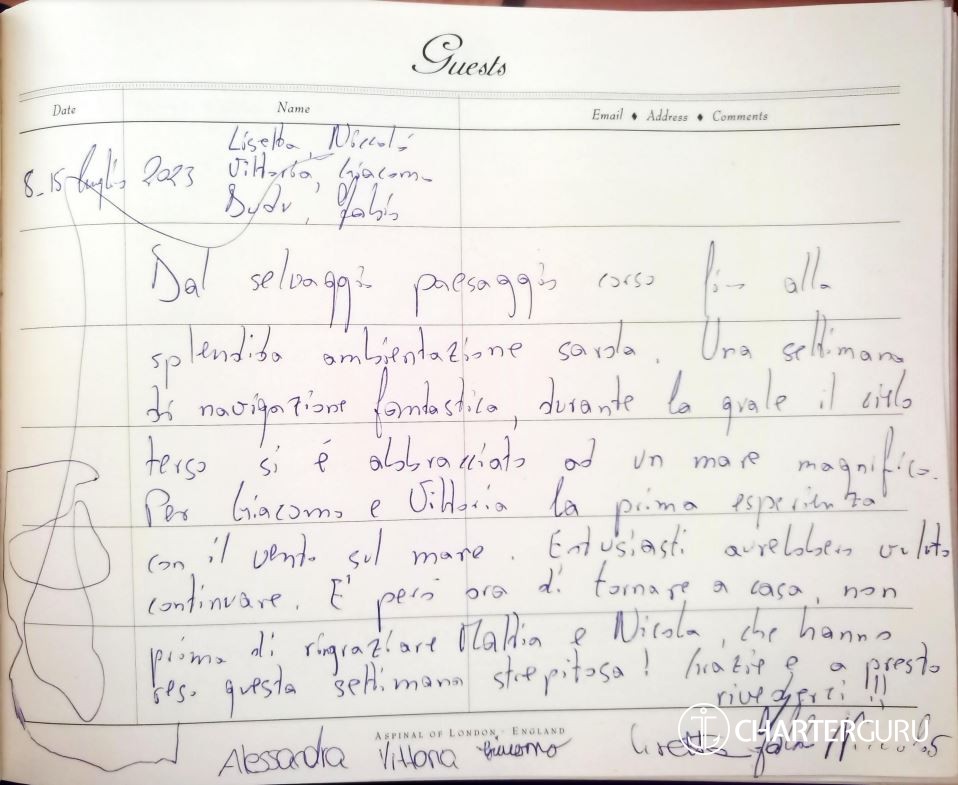 Guests
Date Name Email ♦ Address ♦ Comments
Lisetta, Niccolò
8-15 luglio 2023 Vittoria, Giacomo
Dudu, Fabio
Dal selvaggio paesaggio corso fino alla
splendida ambientazione sarda. Una settimana
di navigazione fantastica, durante la quale il cielo
terso si è abbracciato ad un mare magnifico.
Per Giacomo e Vittoria la prima esperienza
con il vento sul mare. Entusiasti avrebbero voluto
continuare. E' però ora di tornare a casa, non
prima di ringraziare Mattia e Nicola, che hanno
reso questa settimana strepitosa! Grazie e a presto
rivederci!!!
ASPINAL OF LONDON · ENGLAND
Alessandra Vittoria Giacomo Lisetta
CHARTERGURU